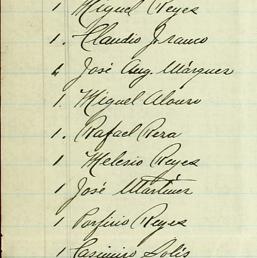 1 Miguel Reyes
1. Claudio Franco
2 José Aug. Márquez
1. Miguel Alonso
1. Rafael Rera
1 Melesio Reyes
1 José Martinez
1 Porfirio Reyes
1 Casimiro Solis